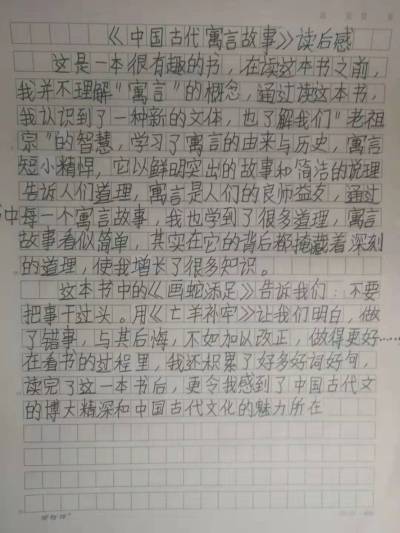 《中国古代寓言故事》读后感
这是一本很有趣的书，在读这本书之前，
我并不理解“寓言”的概念，通过读这本书，
我认识到了一种新的文体，也了解我们“老祖
宗”的智慧，学习了寓言的由来与历史，寓言
短小精悍，它以鲜明突出的故事和简洁的说理
告诉人们道理，寓言是人们的良师益友，通过
书中每一个寓言故事，我也学到了很多道理，寓言
故事看似简单，其实在它的背后都掩藏着深刻
的道理，使我增长了很多知识。
这本书中的《画蛇添足》告诉我们：不要
把事干过头。用《亡羊补牢》让我们明白，做
了错事，与其后悔，不如加以改正，做得更好……
在看书的过程里，我还积累了好多好词好句，
读完了这一本书后，更令我感到了中国古代文
的博大精深和中国古代文化的魅力所在